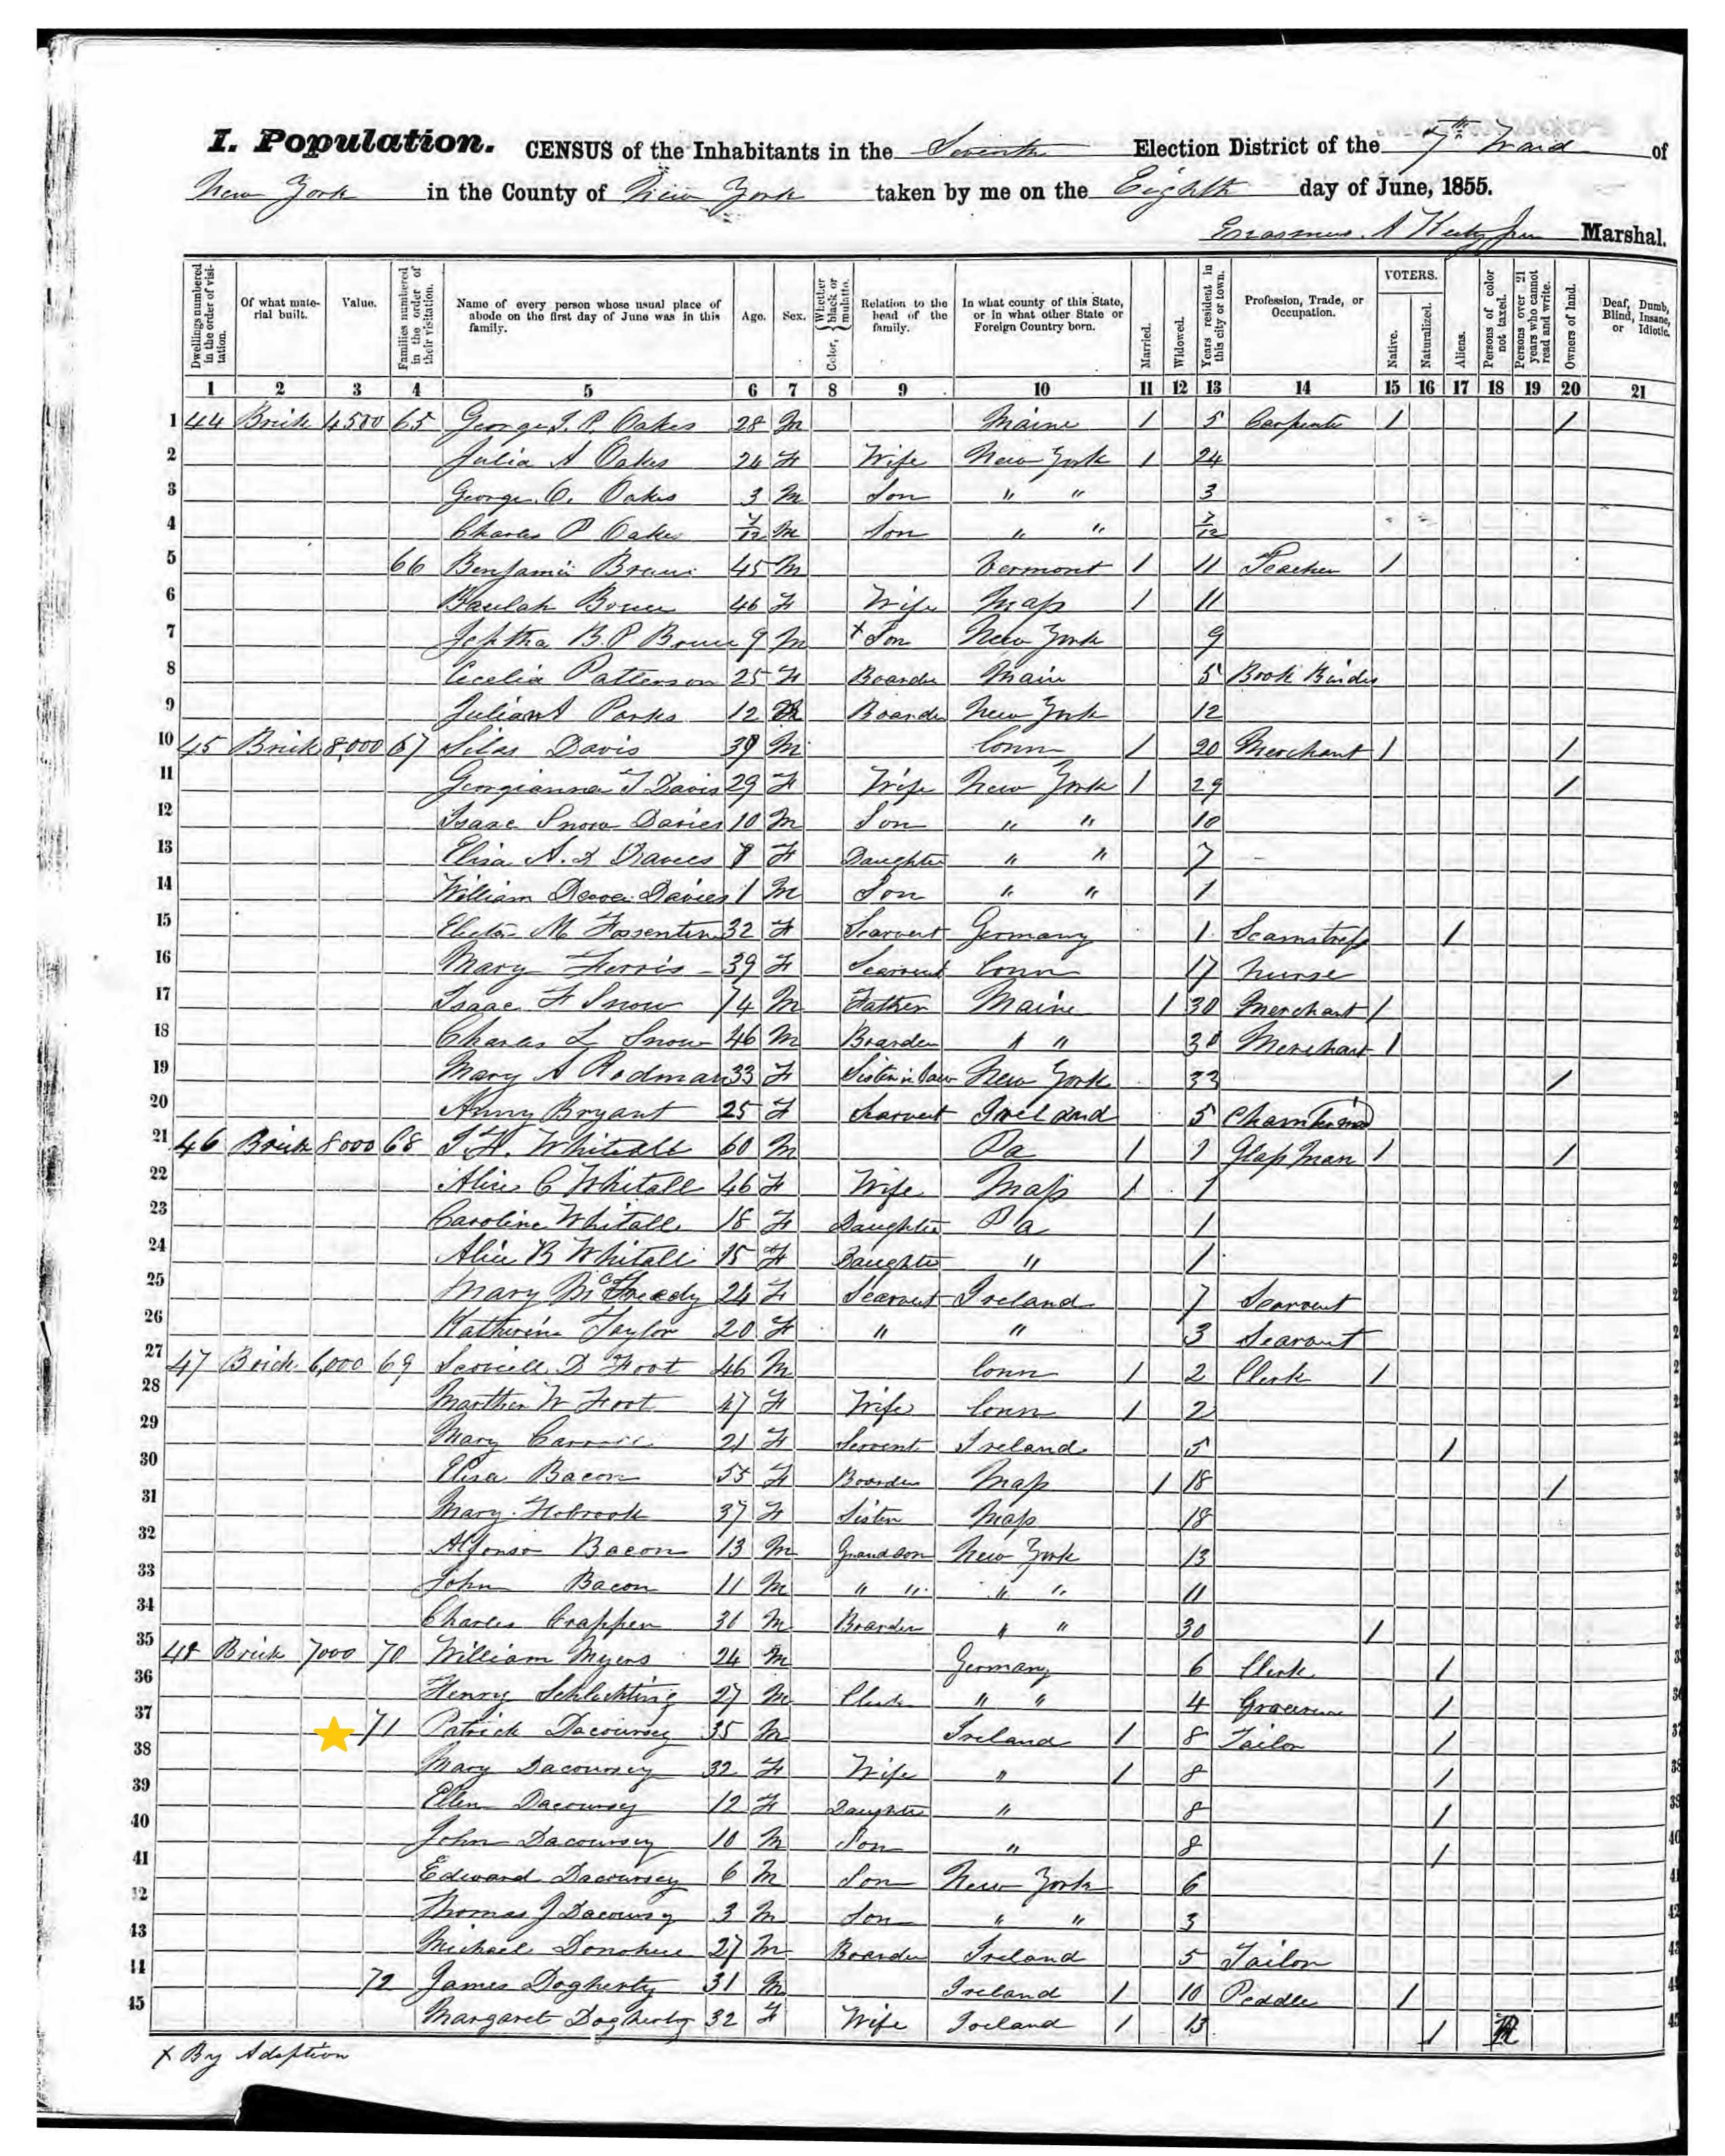 I. Population. CENSUS of the Inhabitants in the Seventh Election District of the 7th Ward of
New York in the County of New York taken by me on the Eighth day of June, 1855.
Erasmus A Marshal.
Dwellings numbered in the order of visitation. Of what material built. Value. Families numbered in the order of their visitation. Name of every person whose usual place of abode on the first day of June was in this family. Age. Sex. Color, Whether black or mulatto. Relation to the head of the family. In what county of this State, or in what other State or Foreign Country born. Married. Widowed. Years resident in this city or town. Profession, Trade, or Occupation. VOTERS. Native. Naturalized. Aliens. Persons of color not taxed. Persons over 21 years who cannot read and write. Owners of land. Deaf, Dumb, Blind, Insane, or Idiotic.
1 2 3 4 5 6 7 8 9 10 11 12 13 14 15 16 17 18 19 20 21
1 44 Brick 4500 65 George P Oakes 28 M Maine / 5 Carpenter / /
2 Julia A Oakes 24 F Wife New York / 24
3 George O. Oakes 3 M Son " " 3
4 Charles P Oakes 7/12 M Son " " 7/12
5 66 Benjamin 45 M Vermont / 11 Teacher /
6 Beulah 46 F Wife Mass / 11
7 Jeptha B. P 9 M x Son New York 9
8 Cecelia Patterson 25 F Boarder Main 5 Book Binder
9 Parks 12 Boarder New York 12
10 45 Brick 8,000 67 Silas Davis 39 M Conn / 20 Merchant / /
11 Georgianna T Davis 29 F Wife New York / 29 /
12 Isaac Snow Davies 10 M Son " " 10
13 Eliza A. Davies F Daughter " " 7
14 William Davies 1 M Son " " 1
15 M 32 F Searvent Germany 1 Seamstress /
16 Mary Ferris 39 F Searvent Conn 17 Nurse
17 Isaac F Snow 74 M Father Maine / 30 Merchant /
18 Charles L Snow 46 M Boarder " " 30 Merchant /
19 Mary A Rodman 33 F Sister in Law New York 33 /
20 Anny Bryant 25 F Searvent Ireland 5
21 46 Brick 8000 68 Whitall 60 M Pa / 1 Glass Man / /
22 Alice C Whitall 46 F Wife Mass / 1
23 Caroline Whitall 18 F Daughter Pa 1
24 Alice B Whitall 15 F Daughter " 1
25 Mary 24 F Searvent Ireland 7 Searvent
26 Katherine Taylor 20 F " " 3 Searvent
27 47 Brick 6,000 69 D Foot 46 M Conn / 2 Clerk /
28 Marther W Foot 47 F Wife Conn / 2
29 Mary 21 F Servent Ireland 5 /
30 Eliza Bacon 55 F Boarder Mass / 18 /
31 Mary Holbrook 37 F Sister Mass 18
32 Alfonso Bacon 13 M Grandson New York 13
33 John Bacon 11 M " " " " 11
34 Charles Crappen M Boarder " " 30 /
35 48 Brick 7000 70 William Myers 24 M Germany 6 Clerk /
36 Henry Schlichting 27 M Clerk " " 4 /
37 71 Patrick Dacoursey 35 M Ireland / 8 Tailor /
38 Mary Dacoursey 32 F Wife " / 8 /
39 Ellen Dacoursey 12 F Daughter " 8 /
40 John Dacoursey 10 M Son " 8 /
41 Edward Dacoursey 6 M Son New York 6
42 Thomas J Dacoursey 3 M Son " " 3
43 Michael Donohue 27 M Boarder Ireland 5 Tailor
44 72 James Dogherty 31 M Ireland / 10 Peddler /
45 Margaret Dogherty 32 F Wife Ireland / 13 /
x By Adoption